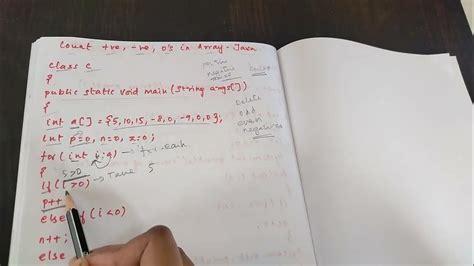 Count +ve, -ve, 0's in Array - Java
class c
{
public static void main(String args[])
{
int a[] = {5,10,15,-8,0,-9,0,0};
int p=0, n=0, z=0;
for(int i:a) → for-each
5>0
if(i>0) → True 5
p++
else if(i<0)
n++;
else
positive
negative
Delete
odd
even
negatives